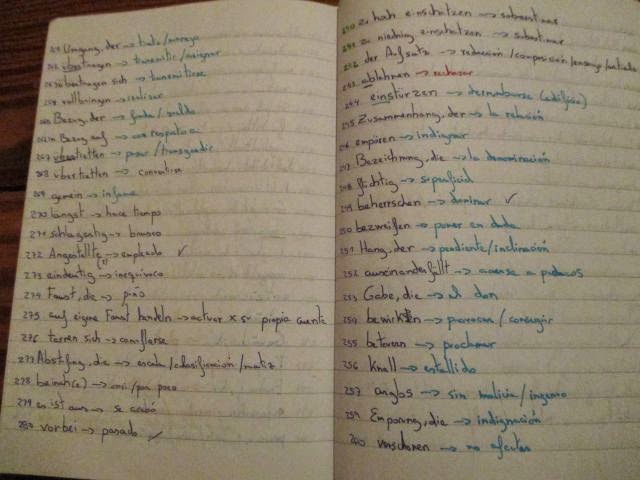 261 Umgang, der → trato/manejo
262 übertragen → transmitir/asignar
übertragen sich → transmitirse
vollbringen → realizar
Bezug, der → funda/sueldo
in Bezug auf → con respecto a
267 übertretten → pasar/transgredir
268 übertretten → convertirse
269 gemein → infame
270 längst → hace tiempo
271 schlagartig → brusco
272 Angestellte → empleado ✓
273 eindeutig → inequívoco
274 Faust, die → puño
275 auf eigene Faust handeln → actuar x su propia cuenta
276 tarren sich → camuflarse
277 Abstufung, die → escala/clasificación/matiz
278 beinah(e) → casi/por poco
279 es ist aus → se acabó
280 vorbei → pasado ✓
zu hoch einschätzen → sobreestimar
zu niedrig einschätzen → subestimar
der Aufsatz → redacción/composición/ensayo
ablehnen → rechazar
244 einstürzen → derrumbarse (edificio)
245 Zusammenhang, der → la relación
246 empören → indignar
247 Bezeichnung, die → la denominación
248 flüchtig → superficial
249 beherrschen → dominar ✓
250 bezweifeln → poner en duda
251 Hang, der → pendiente/inclinación
252 auseinanderfällt → caerse a pedazos
253 Gabe, die → el don
254 bewirken → provocar/conseguir
255 beteuern → proclamar
256 Knall → estallido
257 arglos → sin malicia/ingenuo
259 Emporung, die → indignación
260 verschonen → no afectar